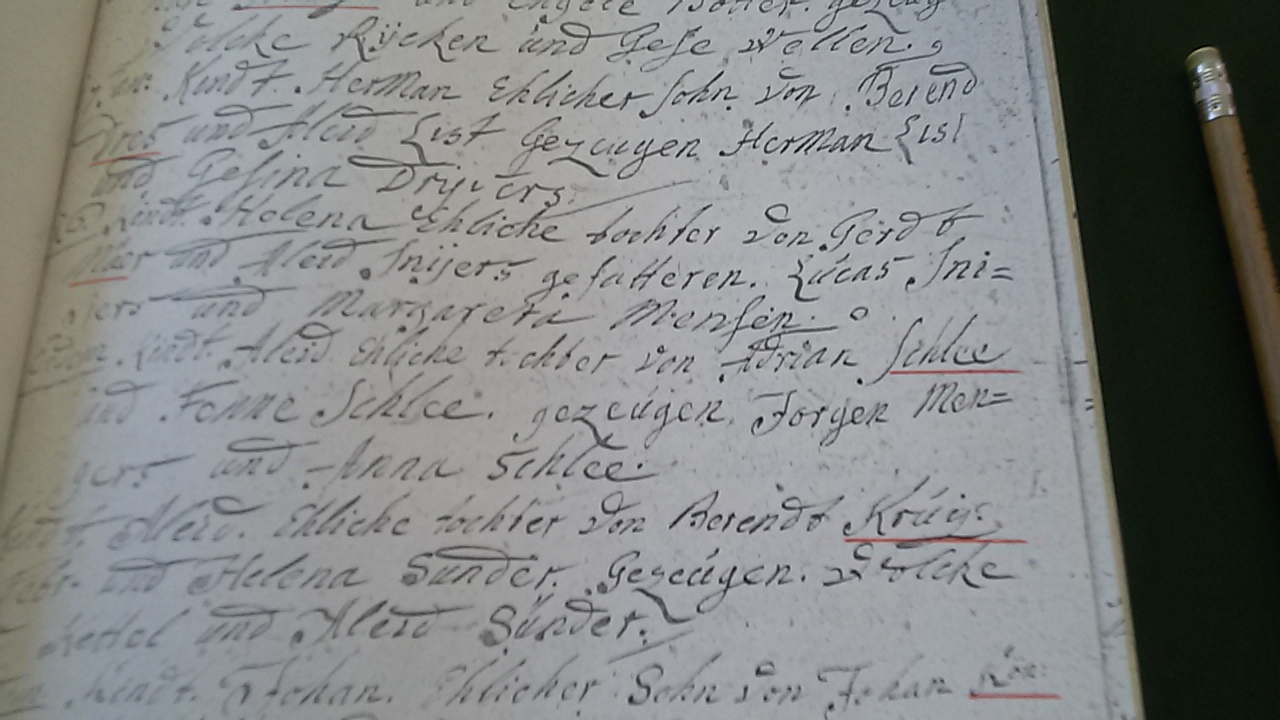 und Engele
Rÿcken und Gese Wellen.
Kindt. Herman Ehlicher sohn von Berend
und Aleid List Gezeugen Herman List
und Gesina
Kindt. Helena Ehliche tochter von Gerdt
Meer und Aleid Snijers gefatteren. Lúcas Sni=
und Margareta Mensen.
Kindt. Aleid Ehliche tochter von Adrian Schlee
und Fenne Schlee. gezeúgen. Jorgen Men=
und Anna Schlee.
Kindt. Aleid. Ehliche tochter von Berendt
und Helena Sunder. Gezeúgen. Wolcke
und Aleid Súnder.
Kindt. Johan. Ehlicher Sohn von Johan